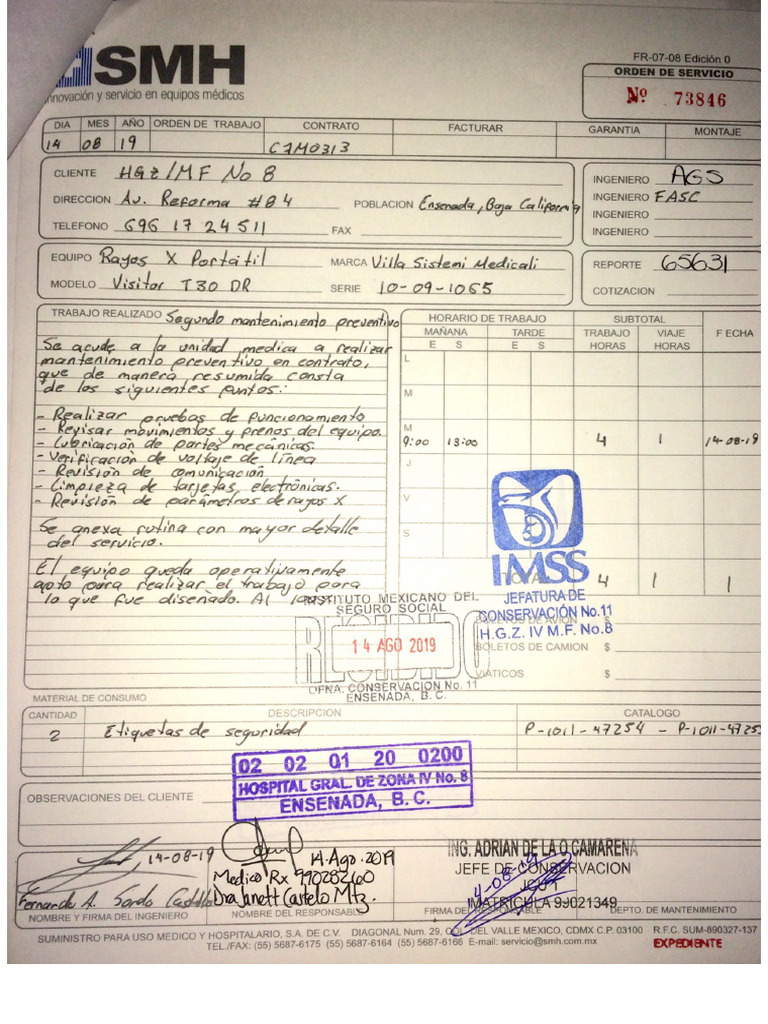 SMH
innovación y servicio en equipos médicos
FR-07-08 Edición 0
ORDEN DE SERVICIO
Nº 73846
DIA MES AÑO ORDEN DE TRABAJO CONTRATO FACTURAR GARANTIA MONTAJE
14 08 19 C7M0313
CLIENTE HGZ/MF No 8
DIRECCION Av. Reforma #84 POBLACION Ensenada, Baja California
TELEFONO 646 17 24 511 FAX
INGENIERO AGS
INGENIERO FASC
INGENIERO
INGENIERO
EQUIPO Rayos X Portátil MARCA Villa Sistemi Medicali
MODELO Visitor T30 DR SERIE 10-09-1065
REPORTE 65631
COTIZACION
TRABAJO REALIZADO Segundo mantenimiento preventivo
Se acude a la unidad medica a realizar
mantenimiento preventivo en contrato,
que de manera resumida consta
de los siguientes puntos:
- Realizar pruebas de funcionamiento
- Revisar movimientos y frenos del equipo.
- Lubricación de partes mecánicas.
- Verificación de voltaje de línea
- Revisión de comunicación
- Limpieza de tarjetas electrónicas.
- Revisión de parámetros de rayos X
Se anexa rutina con mayor detalle
del servicio.
El equipo queda operativamente
apto para realizar el trabajo para
lo que fue diseñado. Al 100%
HORARIO DE TRABAJO SUBTOTAL
MAÑANA TARDE TRABAJO VIAJE F ECHA
E S E S HORAS HORAS
L
M
M
9:00 13:00 4 1 14-08-19
J
V
S
TOTAL 4 1 1
IMSS
JEFATURA DE
CONSERVACIÓN No.11
H.G.Z. IV M.F. No.8
BOLETOS DE AVION $
BOLETOS DE CAMION $
VIATICOS $
INSTITUTO MEXICANO DEL
SEGURO SOCIAL
RECIBIDO
14 AGO 2019
OFNA. CONSERVACION No. 11
ENSENADA, B.C.
MATERIAL DE CONSUMO
CANTIDAD DESCRIPCION CATALOGO
2 Etiquetas de seguridad P-1011-47254 - P-1011-4725
02 02 01 20 0200
HOSPITAL GRAL. DE ZONA IV No. 8
ENSENADA, B. C.
OBSERVACIONES DEL CLIENTE
14-08-19
Fernando A. Sordo Castillo
NOMBRE Y FIRMA DEL INGENIERO
14 Ago. 2019
Medico Rx 99028260
Dra Janett Castelo Mtz.
NOMBRE DEL RESPONSABLE
ING. ADRIAN DE LA O CAMARENA
JEFE DE CONSERVACION
MATRICULA 99021349
FIRMA DEL RESPONSABLE DEPTO. DE MANTENIMIENTO
SUMINISTRO PARA USO MEDICO Y HOSPITALARIO, S.A. DE C.V. DIAGONAL Num. 29, COL. DEL VALLE MEXICO, CDMX C.P. 03100 R.F.C. SUM-890327-137
TEL./FAX: (55) 5687-6175 (55) 5687-6164 (55) 5687-6166 E-mail: servicio@smh.com.mx
EXPEDIENTE